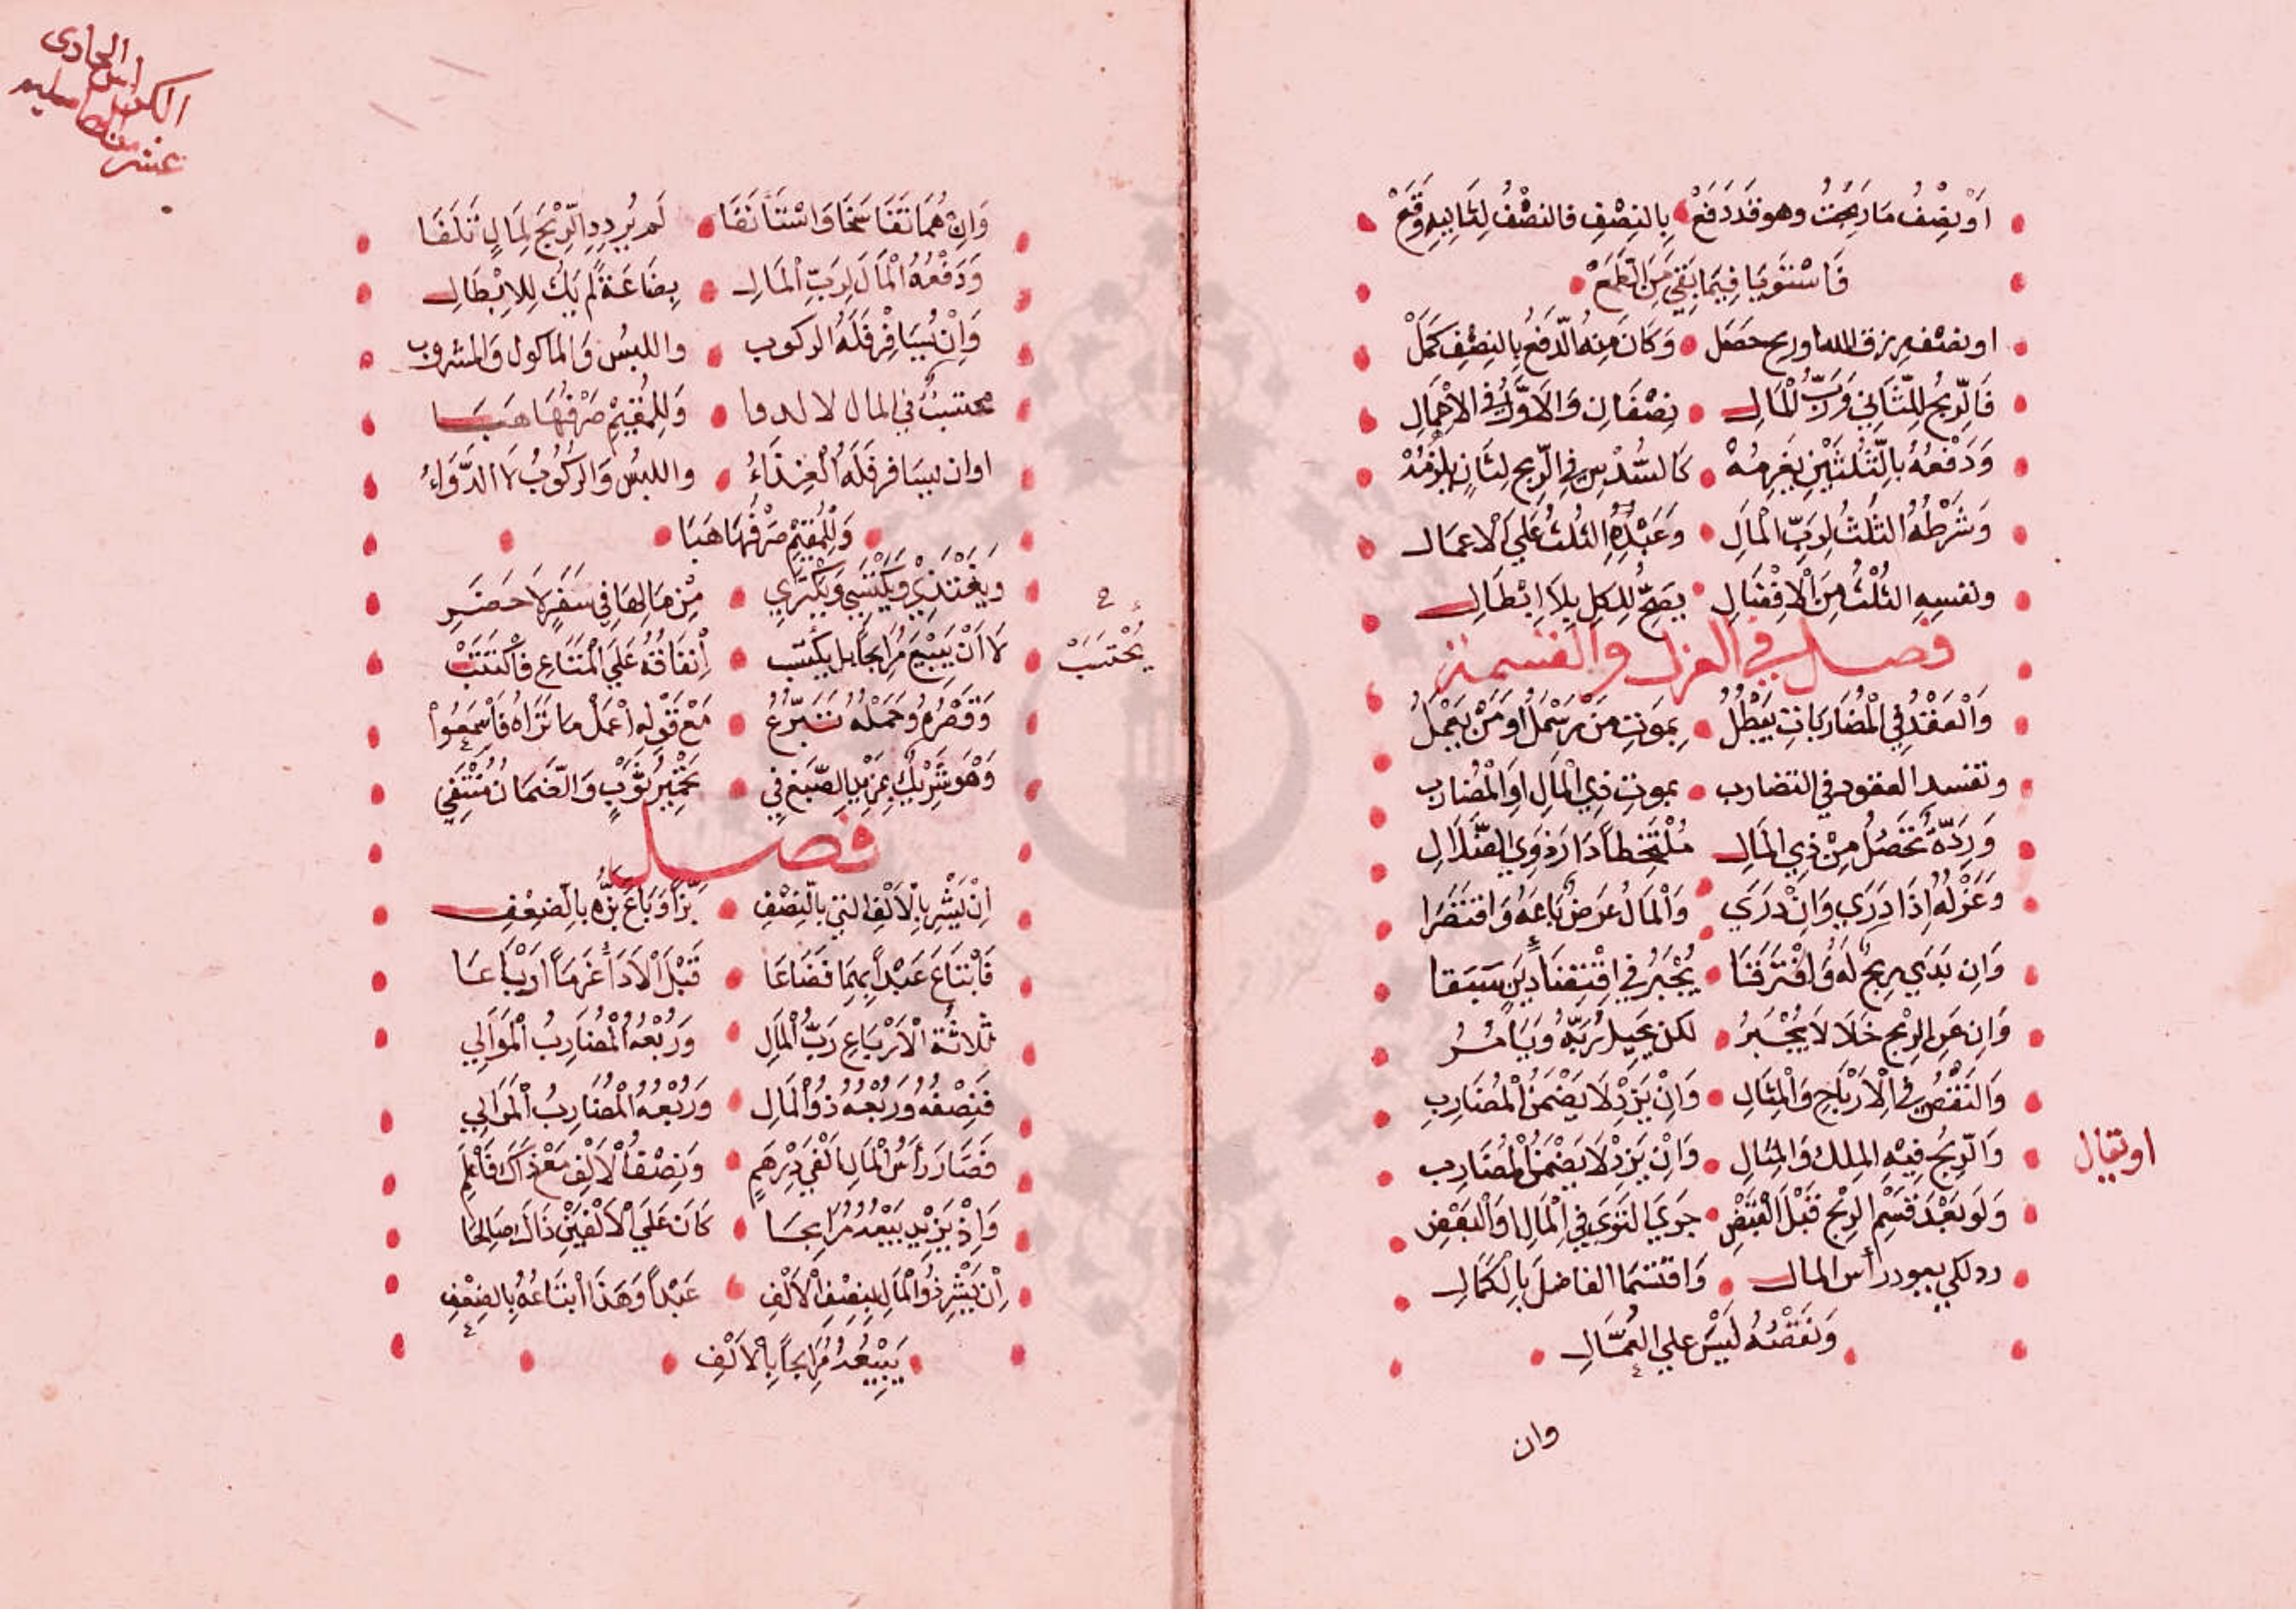 اَوْ نِصْفُ مَا رَبِحْتَ وهو قَد دَفَعْ بِالنِصْفِ فالنصْفُ لِثَانِيهِ وَقَعْ
فَاسْتَوَيَا فِيمَا بَقِي مَن الطَمَعْ
او نصف مرزق الله او ربح حَصَل وَكَانَ مِنهُ الدَّفعُ بِالنِصْفِ كَمَلْ
فَالرِّبحُ لِلثَّانِي وَرَبِّ الْمَالِ نِصْفَانِ وَالاَوَّلُ فِي الاهْمَالِ
وَدَفعُهُ بِالثُلثَيْنِ يُغَرِمُهْ كَالسُّدْسِ فِي الرِّبحِ لِثَانٍ يلزَمُهْ
وَشَرْطُهُ الثُلثُ لِرَبِّ الْمَالِ وَعَبْدِهِ الثُلثُ عَلَي الاعمَال
ونفسِهِ الثُلْثُ مِنَ الاِفْضَالِ يَصِحُّ لِلكل بِلاَ اِبْطَالِ
فصل في العزل والقسمة
وَالْعَقْدُ فِي الْمُضَارَبَاتِ يَبْطُلُ بِمَوتِ مَنْ يَرْسُمُ اَو مَنْ يَعْمَلُ
وتفسد العقود في التضارب بموتِ ذِي الْمَالِ اَوِ الْمُضَارِب
وَرِدّةٌ تَحْصُلُ مِنْ ذِي الْمَالِ مُلْتَحِقاً دَارَ ذَوِي الضَّلَالِ
وَعَزْلُهُ اِذَا دَرَي وَاِنْ دَرَي وَالْمَالُ عرَضٌ بَاعَهُ وَاقتَصَرَا
وَاِن بَدَي رِبحٌ لَهُ وَافْتَرَقَا يُجْبَرُ فِي اقْتِضَا دَيْنٍ سَبَقا
وَاِن عَنِ الرِبْحِ خَلَا لَا يُجْبَرُ لكن يُحِيلُ رَبَّهُ وَيَامُرُ
وَالنَقْصُ فِي الاَرْبَاحِ وَالْمِثَالِ وَاِنْ يَزِدْ لاَ يَضْمَنُ الْمُضَارِبِ
وَالرِّبحُ فِيْهِ الملك وَالْمِثَالِ وَاِنْ يَزِدْ لاَ يَضْمَنُ الْمُضَارِب
او يقال
وَلَو بَعْدَ قَسْمِ الرِبْحِ قَبْلَ القَبْضِ جَرَي التَوَي فِي الْمَالِ او الْبَعْضِ
رد لكي يعود رأس المال وَاقتَسَمَا الفاضلَ بِالْكَمَالِ
وَنَقْصُهُ لَيْسَ علي العُمَّالِ
وان
الكراس الحادي
عشر
وَاِنْ هُمَا تَفَاسَخَا وَاسْتَأنَفَا لَم يُردِدِ الرِّبْحَ لِمَالٍ تَلَفَا
وَدَفْعُهُ الْمَالَ لِرَبِّ الْمَالِ بِضَاعَةً لم يَكُ لِلاِبْطَالِ
وَاِنْ يُسَافِرْ فَلَهُ الركوب واللبسُ وَالماكول وَالمشروب
محتسَبٌ فِي المال لا الدوا وَلِلمُقِيْمِ صَرْفُهَا هَبَا
يُحْتَسَبْ
اوان يسَافر فَلَهُ الْغِذَاءُ واللبسُ وَالركُوبُ لاَ الدَّوَاءُ
وَلِلْمُقِيْمِ صَرْفُهَا هَبَا
وَيَغْتَذِيْ وَيَكْتَسِي وَيَكْتَرِي مِنْ مَالِهَا فِي سَفَرٍ لاَ حَضَرِ
لَا اَنْ يَبِيْعَ مُرَابحاً بل يحْتسَب اِنفَاقُهُ عَلَي الْمَتَاعِ فَاكْتَتَبْ
وَقَصْرُهُ وَحَمْلُهُ تَبَرُّعُ مَعْ قَوْلِهِ اعْمَلْ مَا تَرَاهُ فَاسْمَعُوْا
وَهْوَ شَرِيْكٌ بِمَزِيْدِ الصَّبغِ فِي تَحْمِيْرِ ثَوْبٍ وَالضَّمَانُ مُنْتَفِي
فصل
اِنْ يَشْرِ بِالاَلْفِ التي بِالنِصْفِ بَزّاً وَبَاعَ بَزَّهُ بِالضِعْفِ
فَابْتَاعَ عَبْداً بِهِمَا فَضَاعَا قَبْلَ الاَدَا غَرِمَا اَرْبَاعَا
ثلاثَةُ الاَرْبَاعِ رَبُّ الْمَالِ وَرُبْعُهُ الْمُضَارِبُ الْمَوَالِي
فَنِصْفُهُ وَرُبْعُهُ ذُوْالْمَالِ وَرُبْعُهُ الْمُضَارِبُ الْمَوَالِي
فَصَارَ رَأسُ الْمَالِ اَلْفَي دِرْهَمٍ وَنِصْفُ الاَلْفِ مَعْ ذَاكَ فَاعْلَمِ
وَاِذْ يُرِيْدُ بَيْعَهُ مُرَابحَا كَانَ عَلَي الاَلْفَيْنِ ذَاكَ صَالِحَا
اِنْ يَشْرِ ذُو الْمَالِ بِنِصْفِ الاَلْفِ عَبْداً وَهَذَا ابْتَاعُهُ بِالضِعْفِ
يَبِيْعُهُ مُرَابحاً بِالاَلْفِ